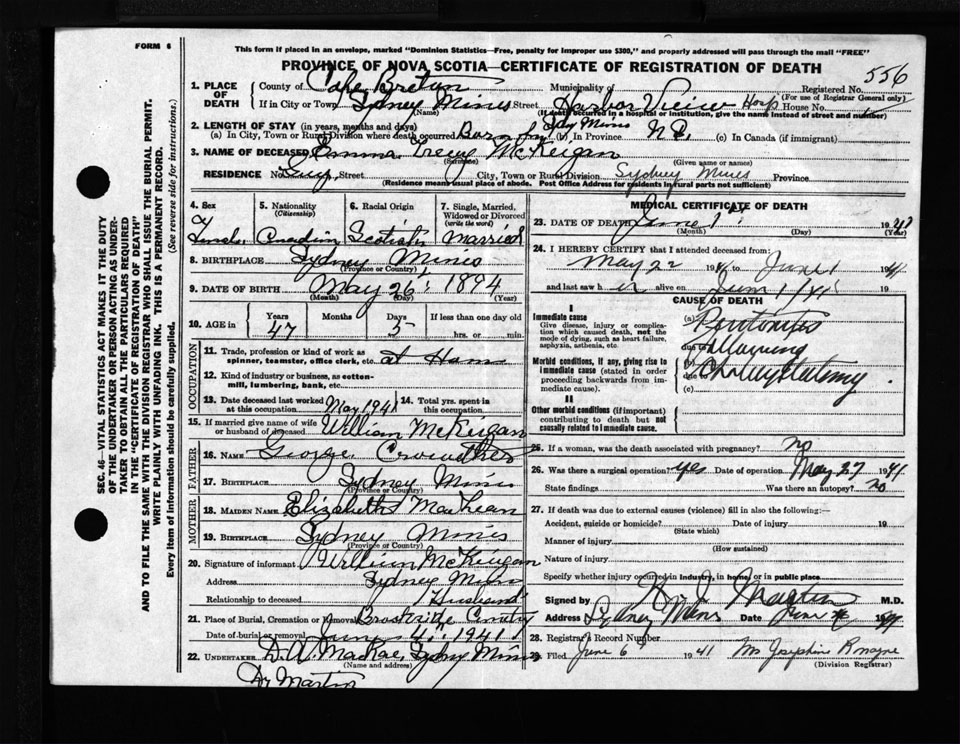 FORM 6
This form if placed in an envelope, marked "Dominion Statistics—Free, penalty for improper use $300," and properly addressed will pass through the mail "FREE"
PROVINCE OF NOVA SCOTIA—CERTIFICATE OF REGISTRATION OF DEATH
556
1. PLACE OF DEATH
County of Cape Breton
Municipality of
Registered No.
(For use of Registrar General only)
If in City or Town Sydney Mines Street Harbor View Hosp House No.
(Name) (If death occurred in hospital or institution, give the name instead of street and number)
2. LENGTH OF STAY (in years, months and days)
(a) In City, Town or Rural Division where death occurred (b) In Province (c) In Canada (if immigrant)
3. NAME OF DECEASED Emma McKeigan
(Surname) (Given name or names)
RESIDENCE No. Street City, Town or Rural Division Sydney Mines Province
(Residence means usual place of abode. Post Office Address for residents in rural parts not sufficient)
4. Sex
5. Nationality (Citizenship)
6. Racial Origin
7. Single, Married, Widowed or Divorced (write the word)
Canadian Scotish Married
8. BIRTHPLACE Sydney Mines
(Province or Country)
9. DATE OF BIRTH May 26 1894
(Month) (Day) (Year)
10. AGE in
Years Months Days If less than one day old
47 5 hrs. or min.
OCCUPATION
11. Trade, profession or kind of work as spinner, teamster, office clerk, etc.
12. Kind of industry or business, as cotton-mill, lumbering, bank, etc.
13. Date deceased last worked at this occupation May 1941
14. Total yrs. spent in this occupation
15. If married give name of wife or husband of deceased William McKeigan
FATHER
16. NAME George Crowther
17. BIRTHPLACE Sydney Mines
(Province or Country)
MOTHER
18. MAIDEN NAME Elizabeth
19. BIRTHPLACE Sydney Mines
(Province or Country)
20. Signature of informant William McKeigan
Address Sydney Mines
Relationship to deceased Husband
21. Place of Burial, Cremation or removal
Date of burial or removal June 4 1941
22. UNDERTAKER D.A. MacRae, Sydney Mines
(Name and address)
Dr Martin
MEDICAL CERTIFICATE OF DEATH
23. DATE OF DEATH June 1st 1941
(Month) (Day) (Year)
24. I HEREBY CERTIFY that I attended deceased from:
May 22 1941 to June 1 1941
and last saw her alive on June 1/41 19
CAUSE OF DEATH
I
Immediate cause
Give disease, injury or complication which caused death, not the mode of dying, such as heart failure, asphyxia, asthenia, etc.
(a) Peritonitis
due to following
Morbid conditions, if any, giving rise to immediate cause (stated in order proceeding backwards from immediate cause).
(b)
due to
(c)
II
Other morbid conditions (if important) contributing to death but not causally related to immediate cause.
25. If a woman, was the death associated with pregnancy? no
26. Was there a surgical operation? yes Date of operation May 27 1941
State findings Was there an autopsy? no
27. If death was due to external causes (violence) fill in also the following:—
Accident, suicide or homicide? Date of injury 19
(State which)
Manner of injury
(How sustained)
Nature of injury
Specify whether injury occurred in industry, in home, or in public place
Signed by Martin M.D.
Address Sydney Mines Date June
28. Registrar's Record Number
29. Filed June 6 1941 Mrs Josephine Romayne
(Division Registrar)
SEC. 46—VITAL STATISTICS ACT MAKES IT THE DUTY
OF THE UNDERTAKER OR PERSON ACTING AS UNDER-
TAKER TO OBTAIN ALL THE PARTICULARS REQUIRED
IN THE "CERTIFICATE OF REGISTRATION OF DEATH"
AND TO FILE THE SAME WITH THE DIVISION REGISTRAR WHO SHALL ISSUE THE BURIAL PERMIT.
WRITE PLAINLY WITH UNFADING INK. THIS IS A PERMANENT RECORD.
Every item of information should be carefully supplied. (See reverse side for instructions.)